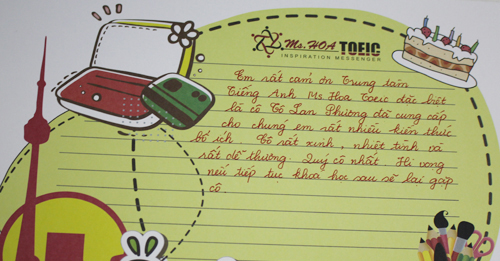 Ms. HOA TOEIC
INSPIRATION MESSENGER
Em rất cảm ơn Trung tâm
Tiếng Anh Ms Hoa Toeic đặc biệt
là cô Tô Lan Phương đã cung cấp
cho chúng em rất nhiều kiến thức
bổ ích. Cô rất xinh, nhiệt tình và
rất dễ thương. Quý cô nhất. Hi vọng
nếu tiếp tục khoá học sau sẽ lại gặp
cô.